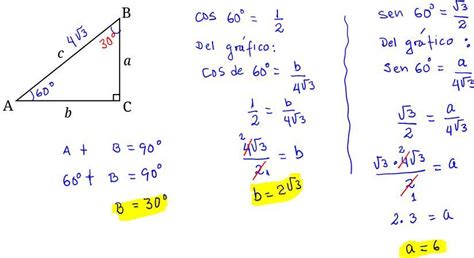 B
4√3
30°
c
a
60°
A
b
C
A + B = 90°
60° + B = 90°
B = 30°
cos 60° = 1/2
Del gráfico:
cos de 60° = b/4√3
1/2 = b/4√3
2 4√3/2 1 = b
b = 2√3
sen 60° = √3/2
Del gráfico:
sen 60° = a/4√3
√3/2 = a/4√3
√3 · 2 4√3/2 1 = a
2 . 3 = a
a = 6